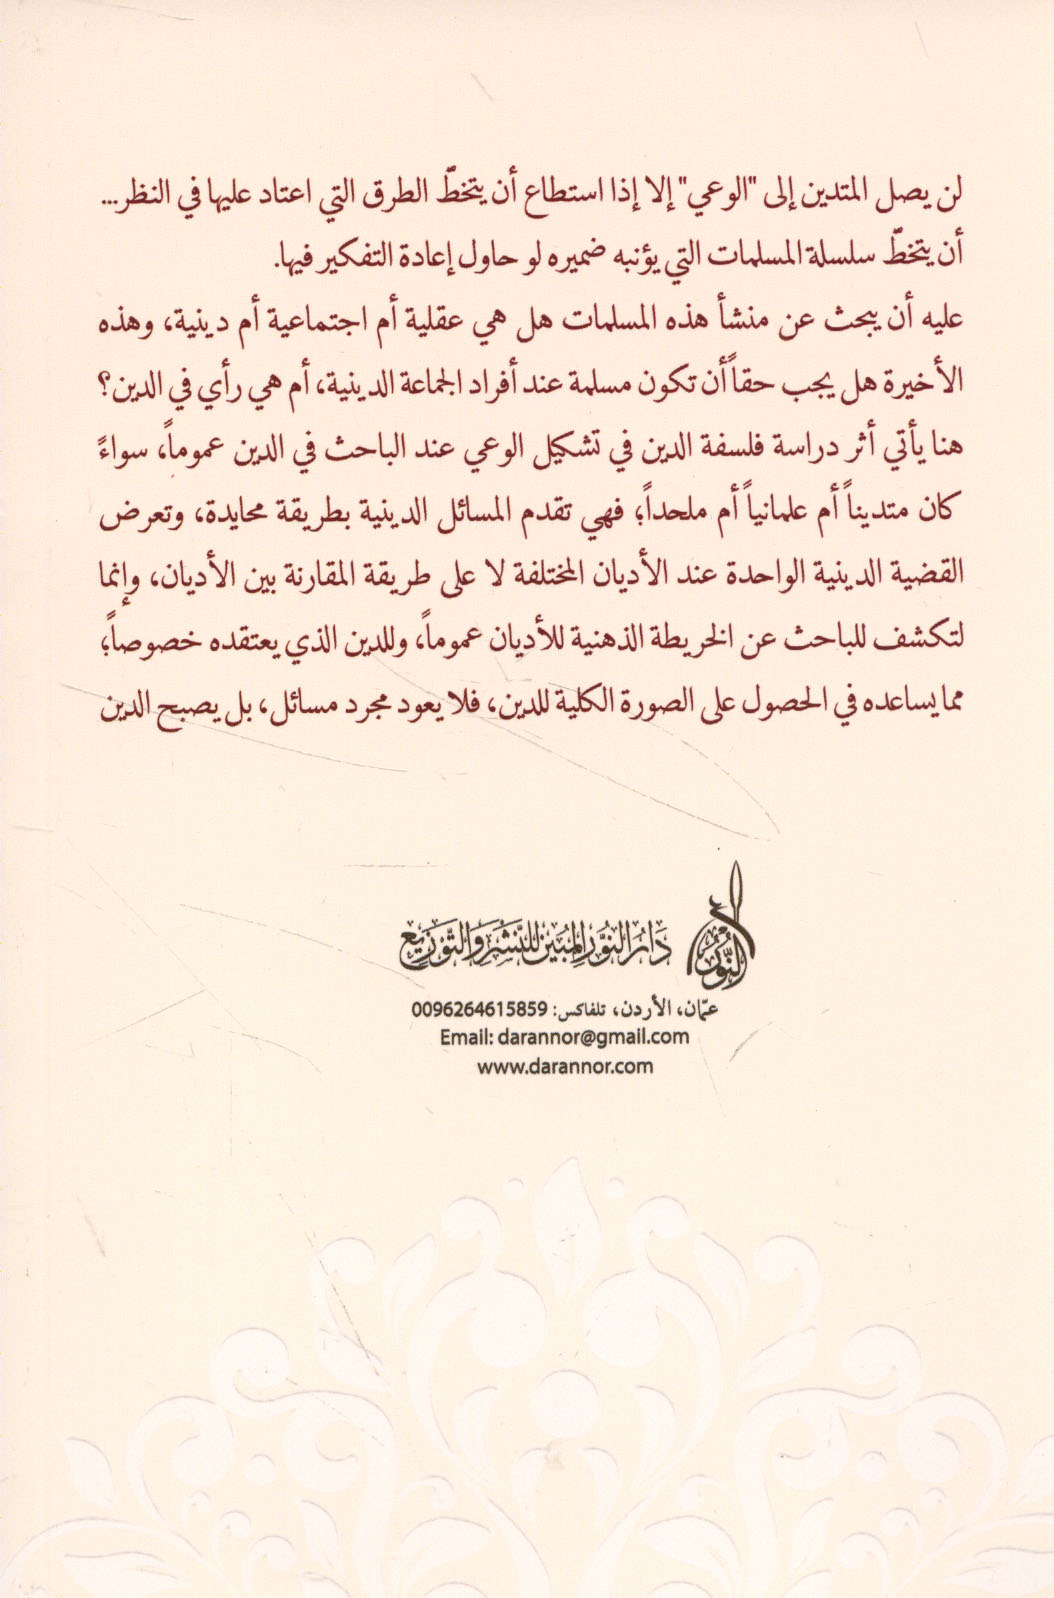 لن يصل المتدين إلى "الوعي" إلا إذا استطاع أن يتخطّ الطرق التي اعتاد عليها في النظر...
أن يتخطّ سلسلة المسلمات التي يؤنبه ضميره لو حاول إعادة التفكير فيها.
عليه أن يبحث عن منشأ هذه المسلمات هل هي عقلية أم اجتماعية أم دينية، وهذه
الأخيرة هل يجب حقاً أن تكون مسلمة عند أفراد الجماعة الدينية، أم هي رأي في الدين؟
هنا يأتي أثر دراسة فلسفة الدين في تشكيل الوعي عند الباحث في الدين عموماً، سواءً
كان متديناً أم علمانياً أم ملحداً؛ فهي تقدم المسائل الدينية بطريقة محايدة، وتعرض
القضية الدينية الواحدة عند الأديان المختلفة لا على طريقة المقارنة بين الأديان، وإنما
لتكشف للباحث عن الخريطة الذهنية للأديان عموماً، وللدين الذي يعتقده خصوصاً؛
مما يساعده في الحصول على الصورة الكلية للدين، فلا يعود مجرد مسائل، بل يصبح الدين
النُّور
دَارُ النُّورِ المُبِين لِلنَّشْرِ وَالتَّوزِيع
عمّان، الأردن، تلفاكس: 0096264615859
Email: darannor@gmail.com
www.darannor.com